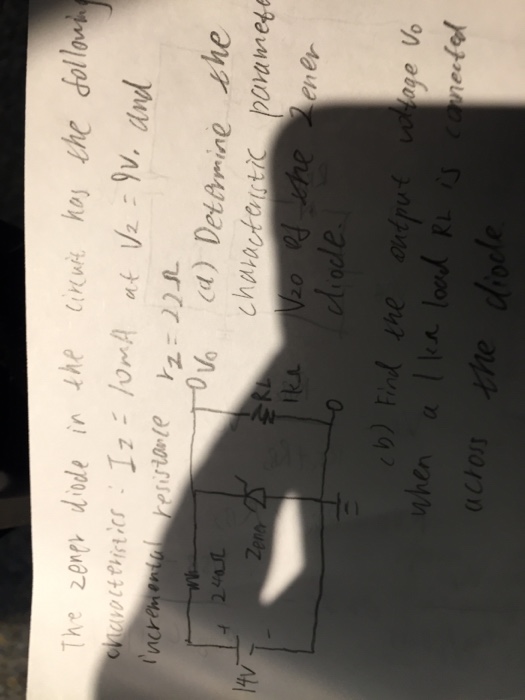 The zener diode in the circuit has the following
characteristics: Iz = 10mA at Vz = 9V, and
incremental resistance rz = 22Ω
(a) Determine the
characteristic
Vzo of the Zener
diode.
Vo
240Ω
14V
+
-
Zener
RL
1kΩ
(b) Find the output voltage Vo
when a 1kΩ load RL is connected
across the diode